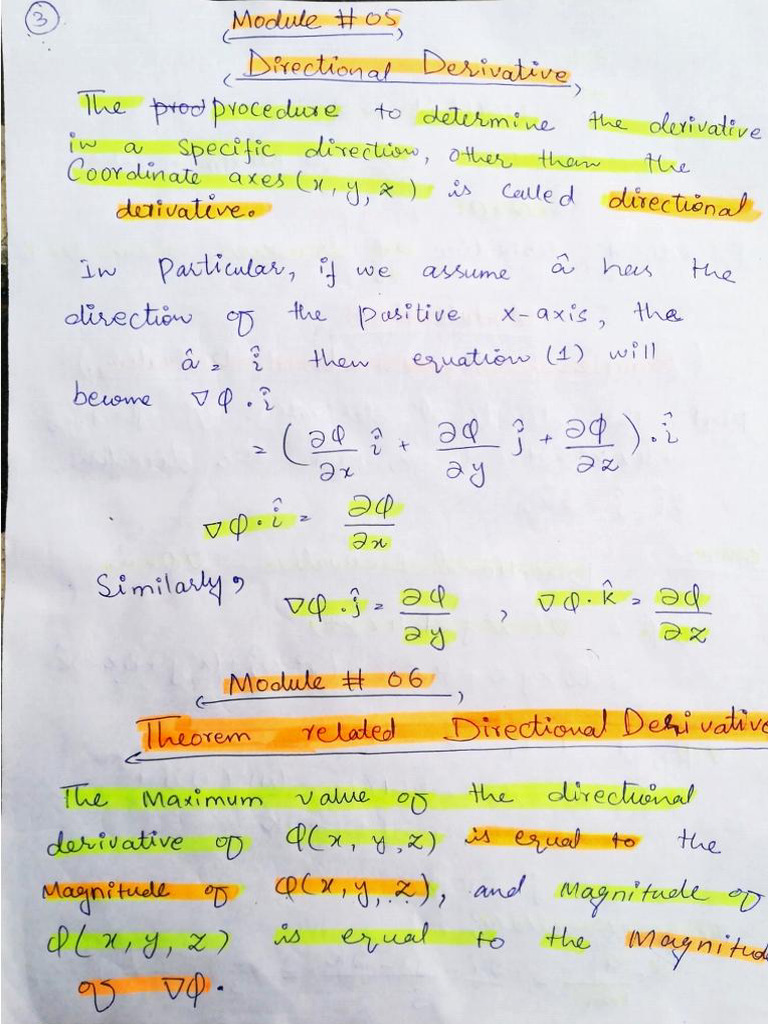 3
Module # 05
Directional Derivative
The prod procedure to determine the derivative
in a specific direction, other than the
Coordinate axes (x, y, z) is called directional
derivative.
In Particular, if we assume â has the
direction of the positive x-axis, the
â = î then equation (1) will
become ∇φ . î
= (∂φ/∂x î + ∂φ/∂y ĵ + ∂φ/∂z) . î
∇φ . î = ∂φ/∂x
Similarly, ∇φ . ĵ = ∂φ/∂y , ∇φ . k̂ = ∂φ/∂z
Module # 06
Theorem related Directional Derivative
The Maximum value of the directional
derivative of φ(x, y, z) is equal to the
Magnitude of φ(x, y, z), and Magnitude of
φ(x, y, z) is equal to the Magnitud
of ∇φ.